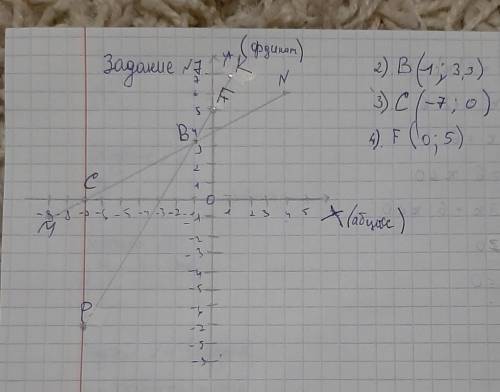 Задание №7
У (фдинат)
K
7
7
6
F
5
N
B 4
3
2
1
C
0
-9 -8 -7 -6 -5 -4 -3 -2 -1
1 2 3 4 5
X (абцисс)
M
-1
-2
-3
-4
-5
-6
P
-2
-5
-9
2). B (1; 3,3)
3) C (-7; 0)
4). F (0; 5)